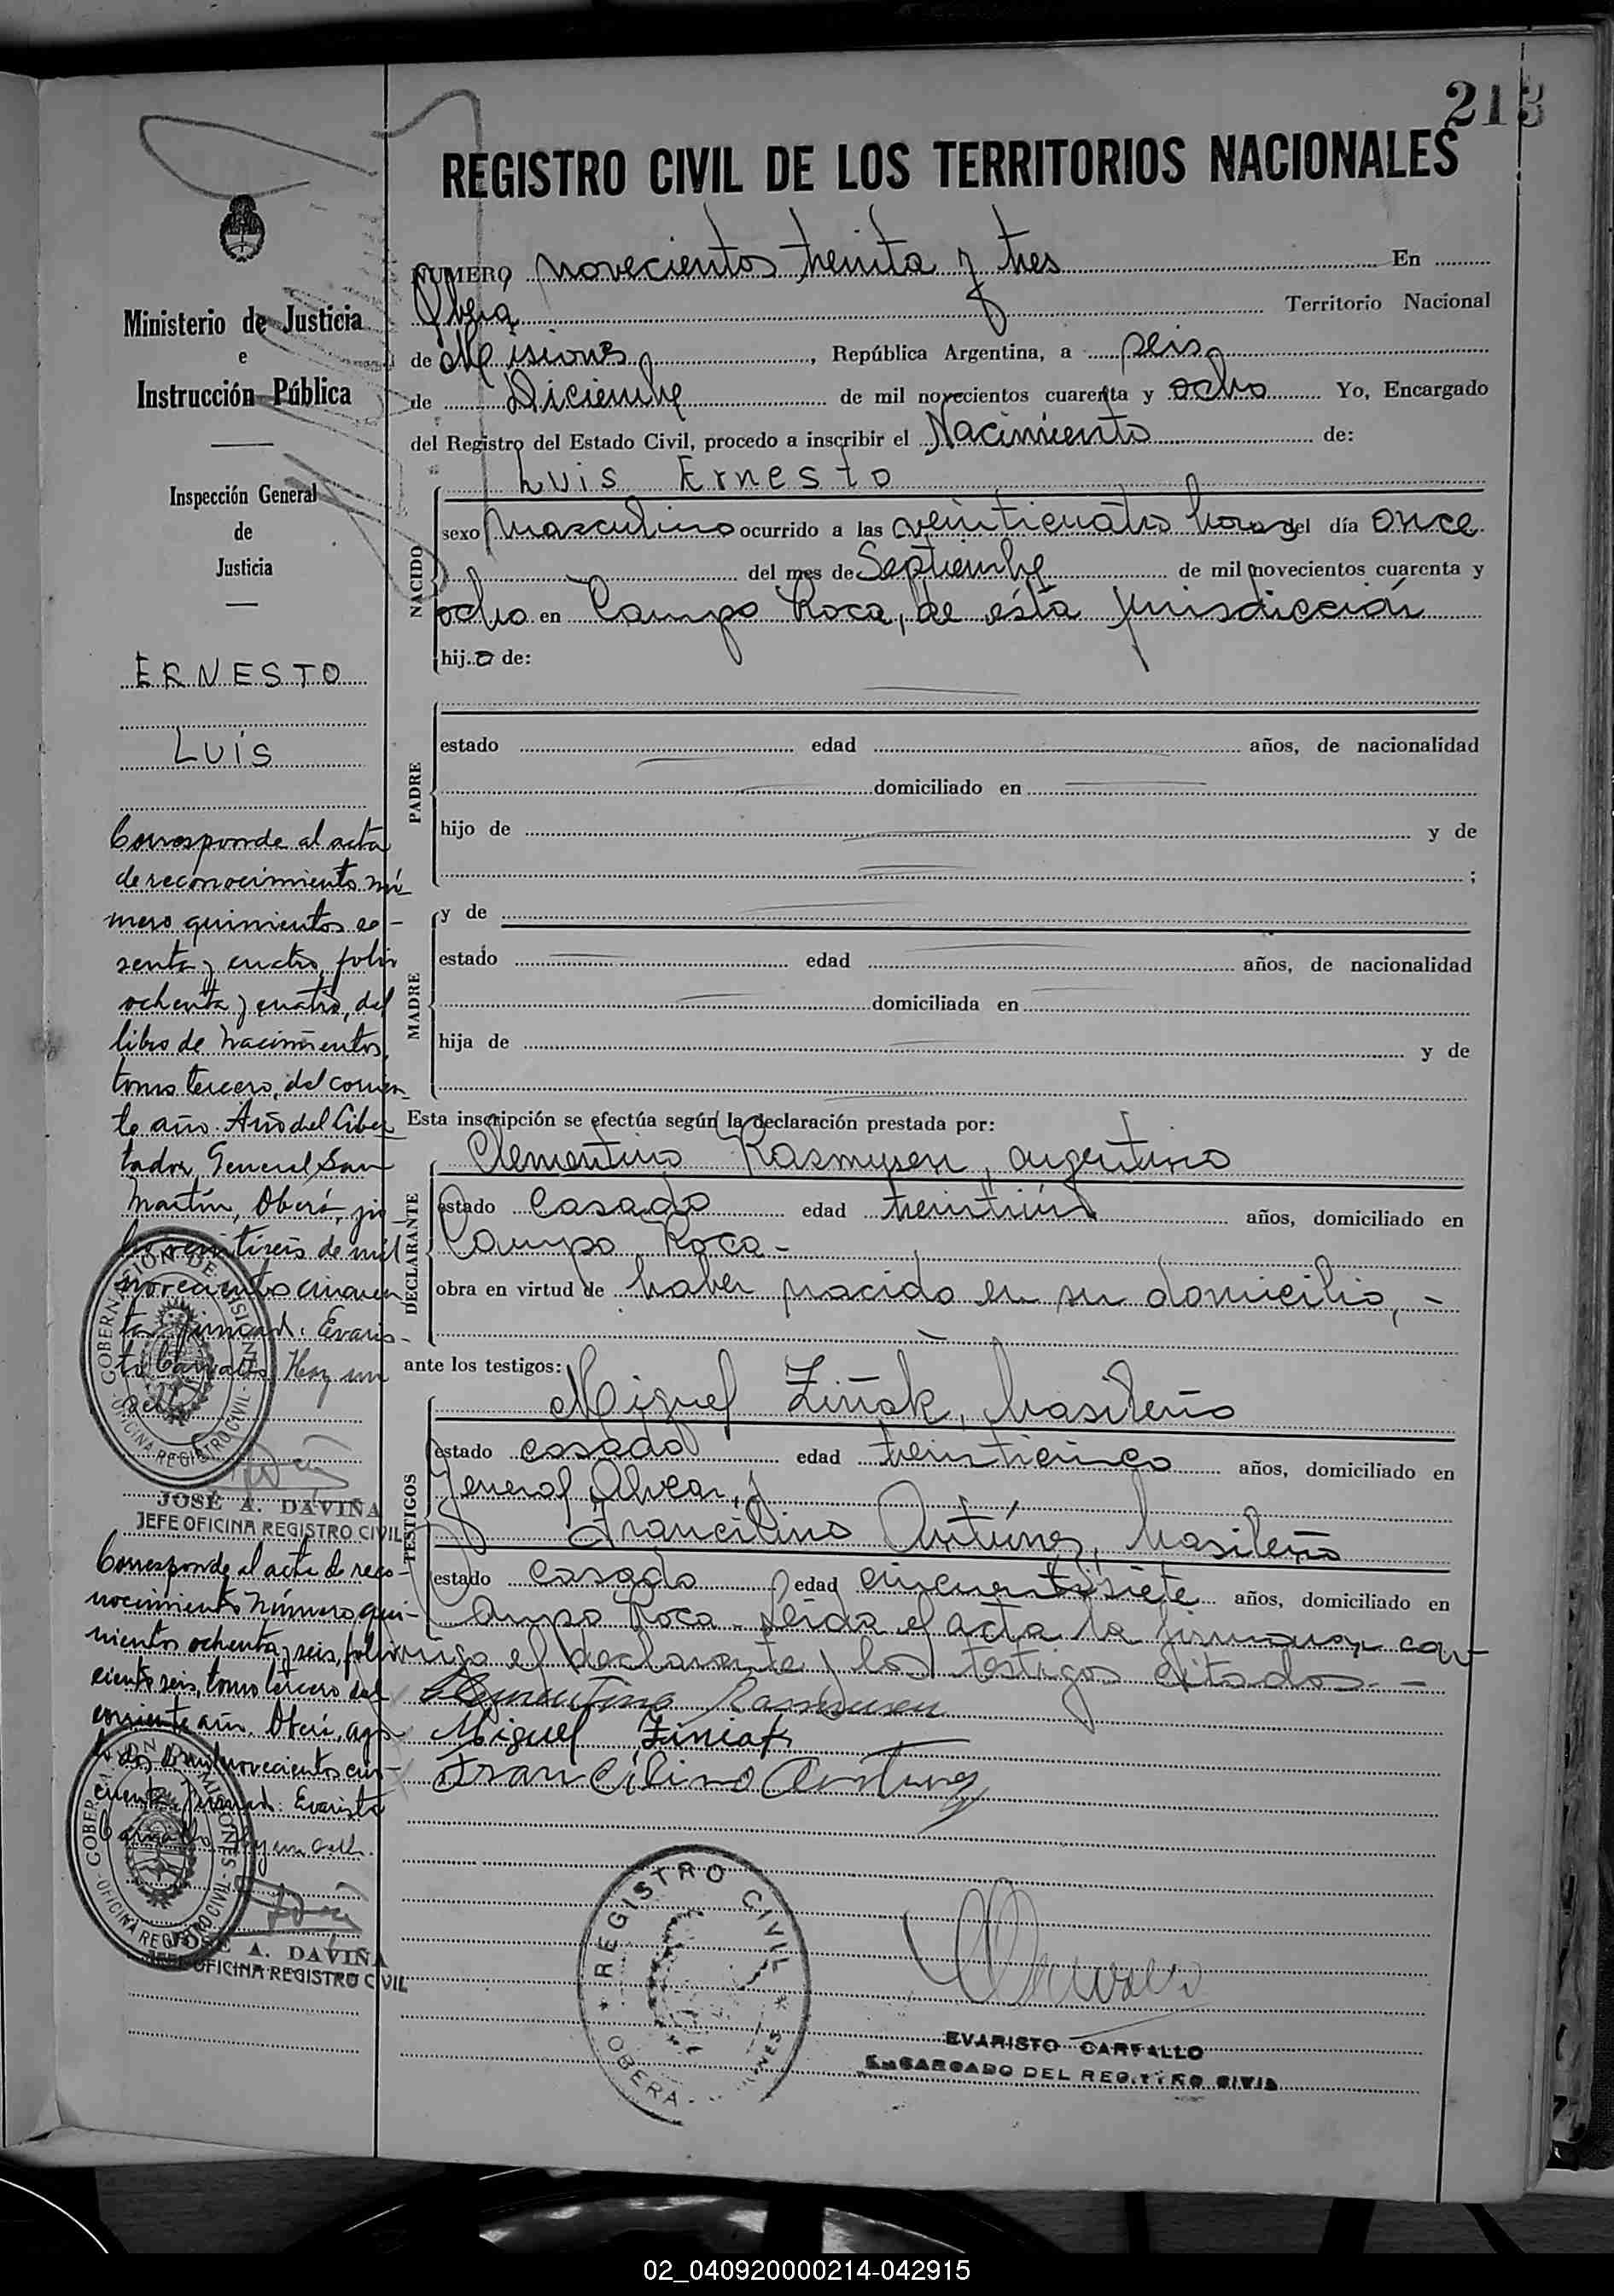 213
REGISTRO CIVIL DE LOS TERRITORIOS NACIONALES
NUMERO novecientos treinta y tres En
Oberá Territorio Nacional
de Misiones, República Argentina, a seis
de Diciembre de mil novecientos cuarenta y ocho Yo, Encargado
del Registro del Estado Civil, procedo a inscribir el Nacimiento de:
Luis Ernesto
NACIDO
sexo masculino ocurrido a las veinticuatro horas del día once
del mes de Septiembre de mil novecientos cuarenta y
ocho en Campo Roca, de ésta jurisdicción
hijo de:
PADRE
estado edad años, de nacionalidad
domiciliado en
hijo de y de
;
MADRE
y de
estado edad años, de nacionalidad
domiciliada en
hija de y de
Esta inscripción se efectúa según la declaración prestada por:
DECLARANTE
Clementino Rasmusen, argentino
estado casado edad treintiún años, domiciliado en
Campo Roca -
obra en virtud de haber nacido en su domicilio, -
ante los testigos:
TESTIGOS
Miguel Ziñak, brasileño
estado casado edad treinticinco años, domiciliado en
General Alvear, y
Francilino Antúnez, brasileño
estado casado edad cincuentisiete años, domiciliado en
Campo Roca. Leída el acta la firman con-
migo el declarante y los testigos citados. -
Clementino Rasmusen
Miguel Ziniak
Francilino Antunez
REGISTRO CIVIL
OBERA - MISIONES
EVARISTO CARVALLO
ENCARGADO DEL REGISTRO CIVIL
Ministerio de Justicia
e
Instrucción Pública
Inspección General
de
Justicia
ERNESTO
LUIS
Corresponde al acta
de reconocimiento nú-
mero quinientos se-
senta y cuatro, folio
ochenta y cuatro, del
libro de Nacimientos,
tomo tercero, del corrien-
te año. Año del Liber
tador General San
Martín, Oberá, ju
lio veintiseis de mil
novecientos cincuen
ta. Firmad: Evaris-
to Carvallo. Hay un
sello
GOBERNACIÓN DE MISIONES
OFICINA REGISTRO CIVIL
JOSÉ A. DAVIÑA
JEFE OFICINA REGISTRO CIVIL
Corresponde al acta de reco-
nocimiento Número qui-
nientos ochenta y seis, folio
ciento seis, tomo tercero del
corriente año. Oberá, agos
to dos de mil novecientos cin-
cuenta. Firmad: Evaristo
Carvallo. Hay un sello.
GOBERNACIÓN DE MISIONES
OFICINA REGISTRO CIVIL
JOSÉ A. DAVIÑA
JEFE OFICINA REGISTRO CIVIL
02_040920000214-042915